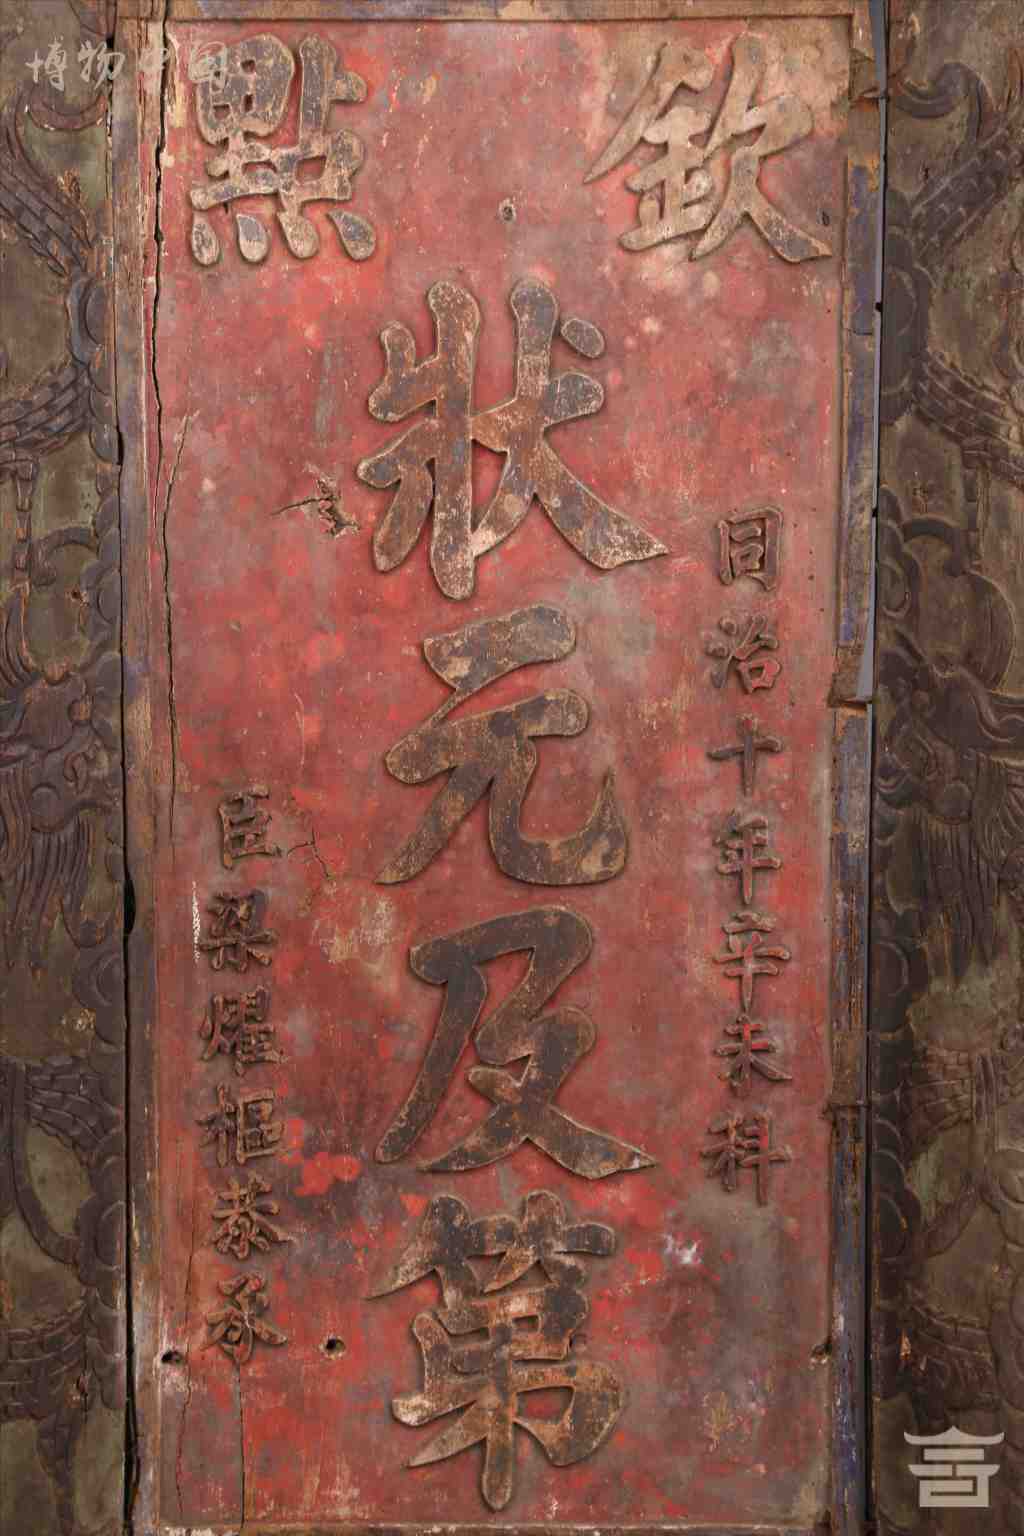 欽點
同治十年辛未科
狀元及第
臣梁燿樞恭承
博物中国